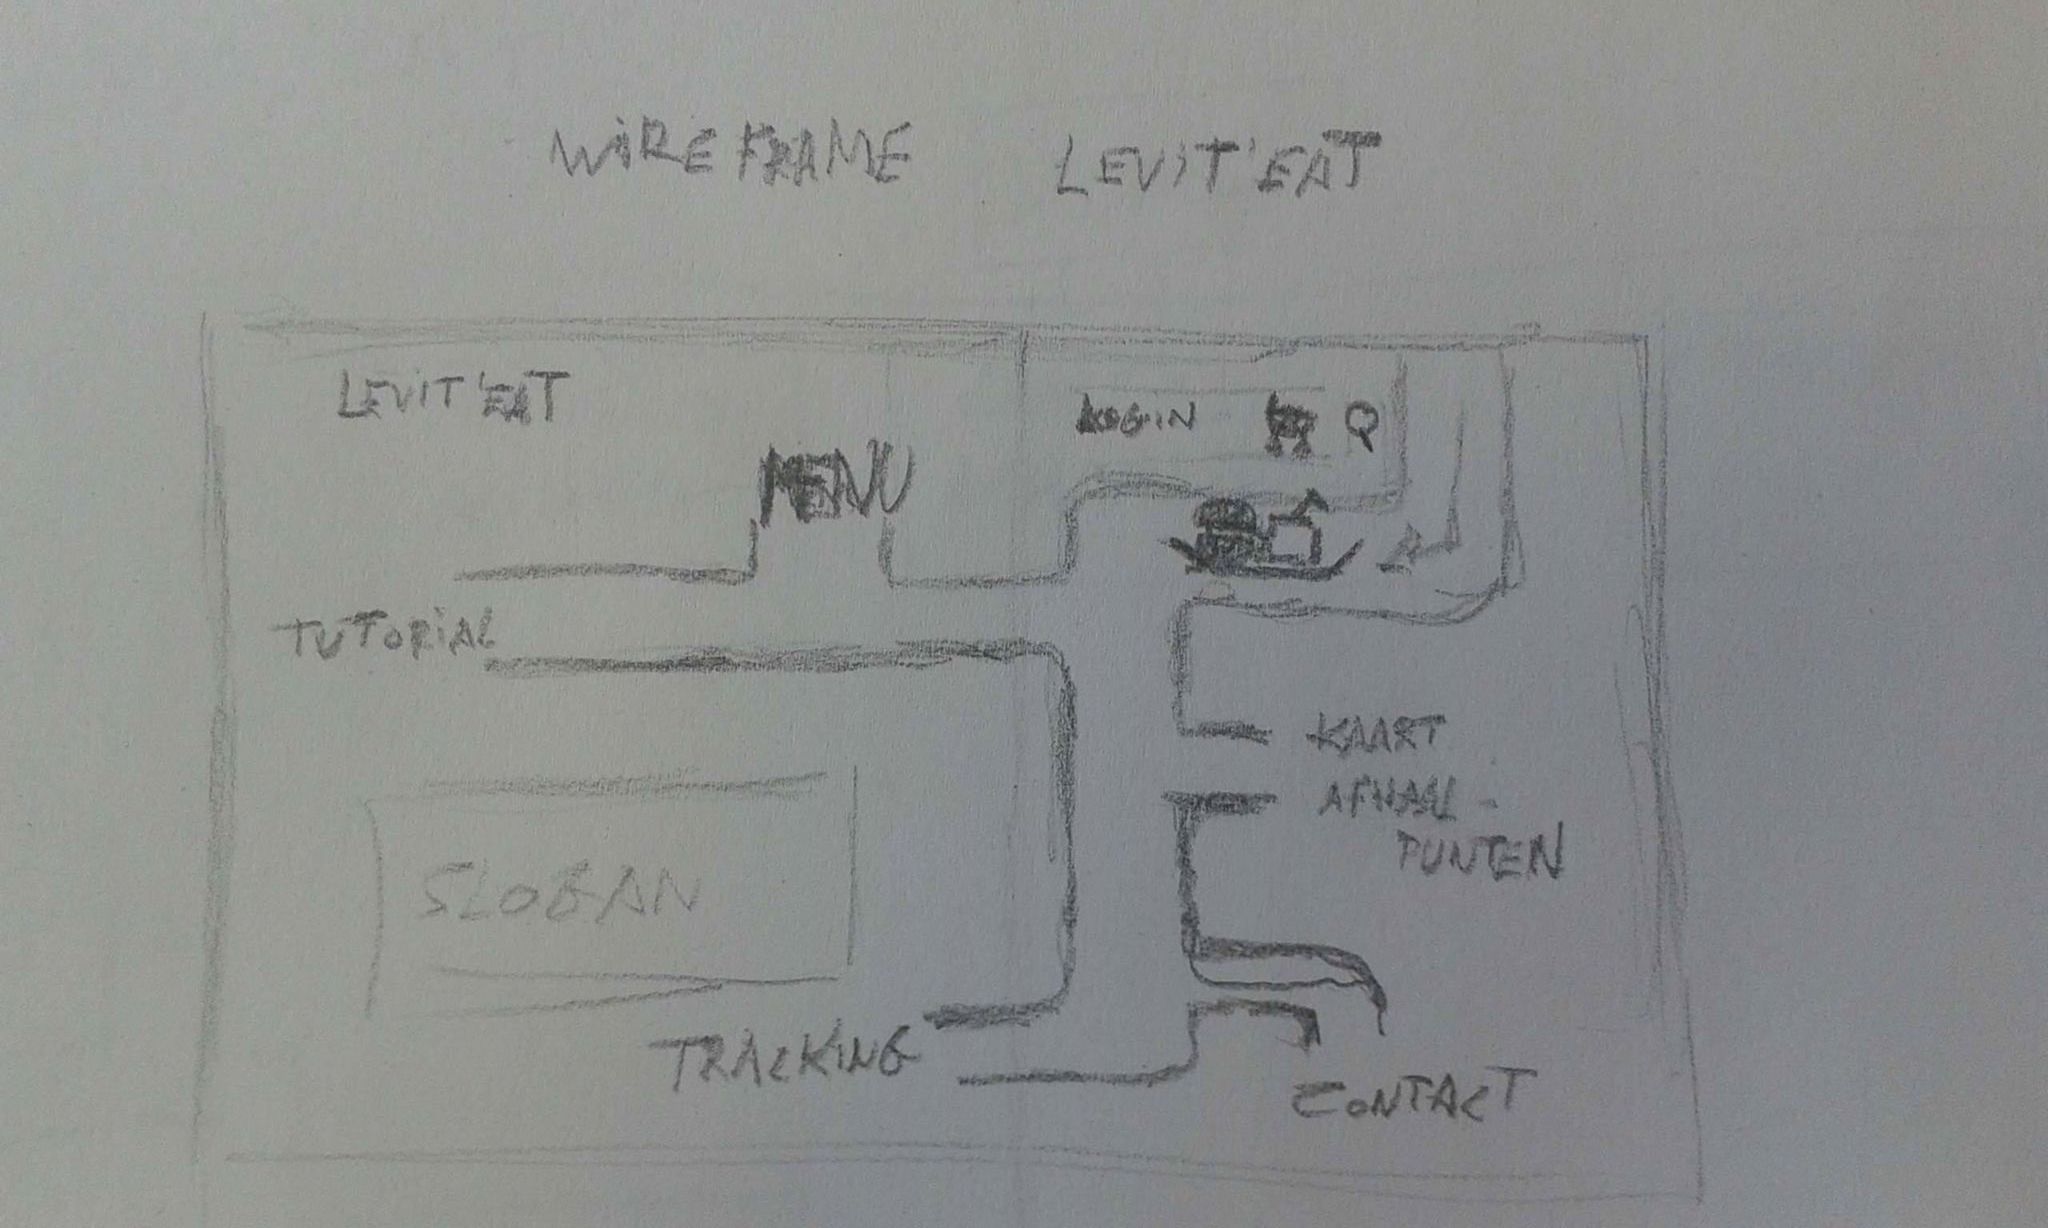 WIREFRAME LEVIT'EAT
LEVIT'EAT
LOGIN
MENU
TUTORIAL
KAART
AFHAAL-
PUNTEN
SLOGAN
TRACKING
CONTACT